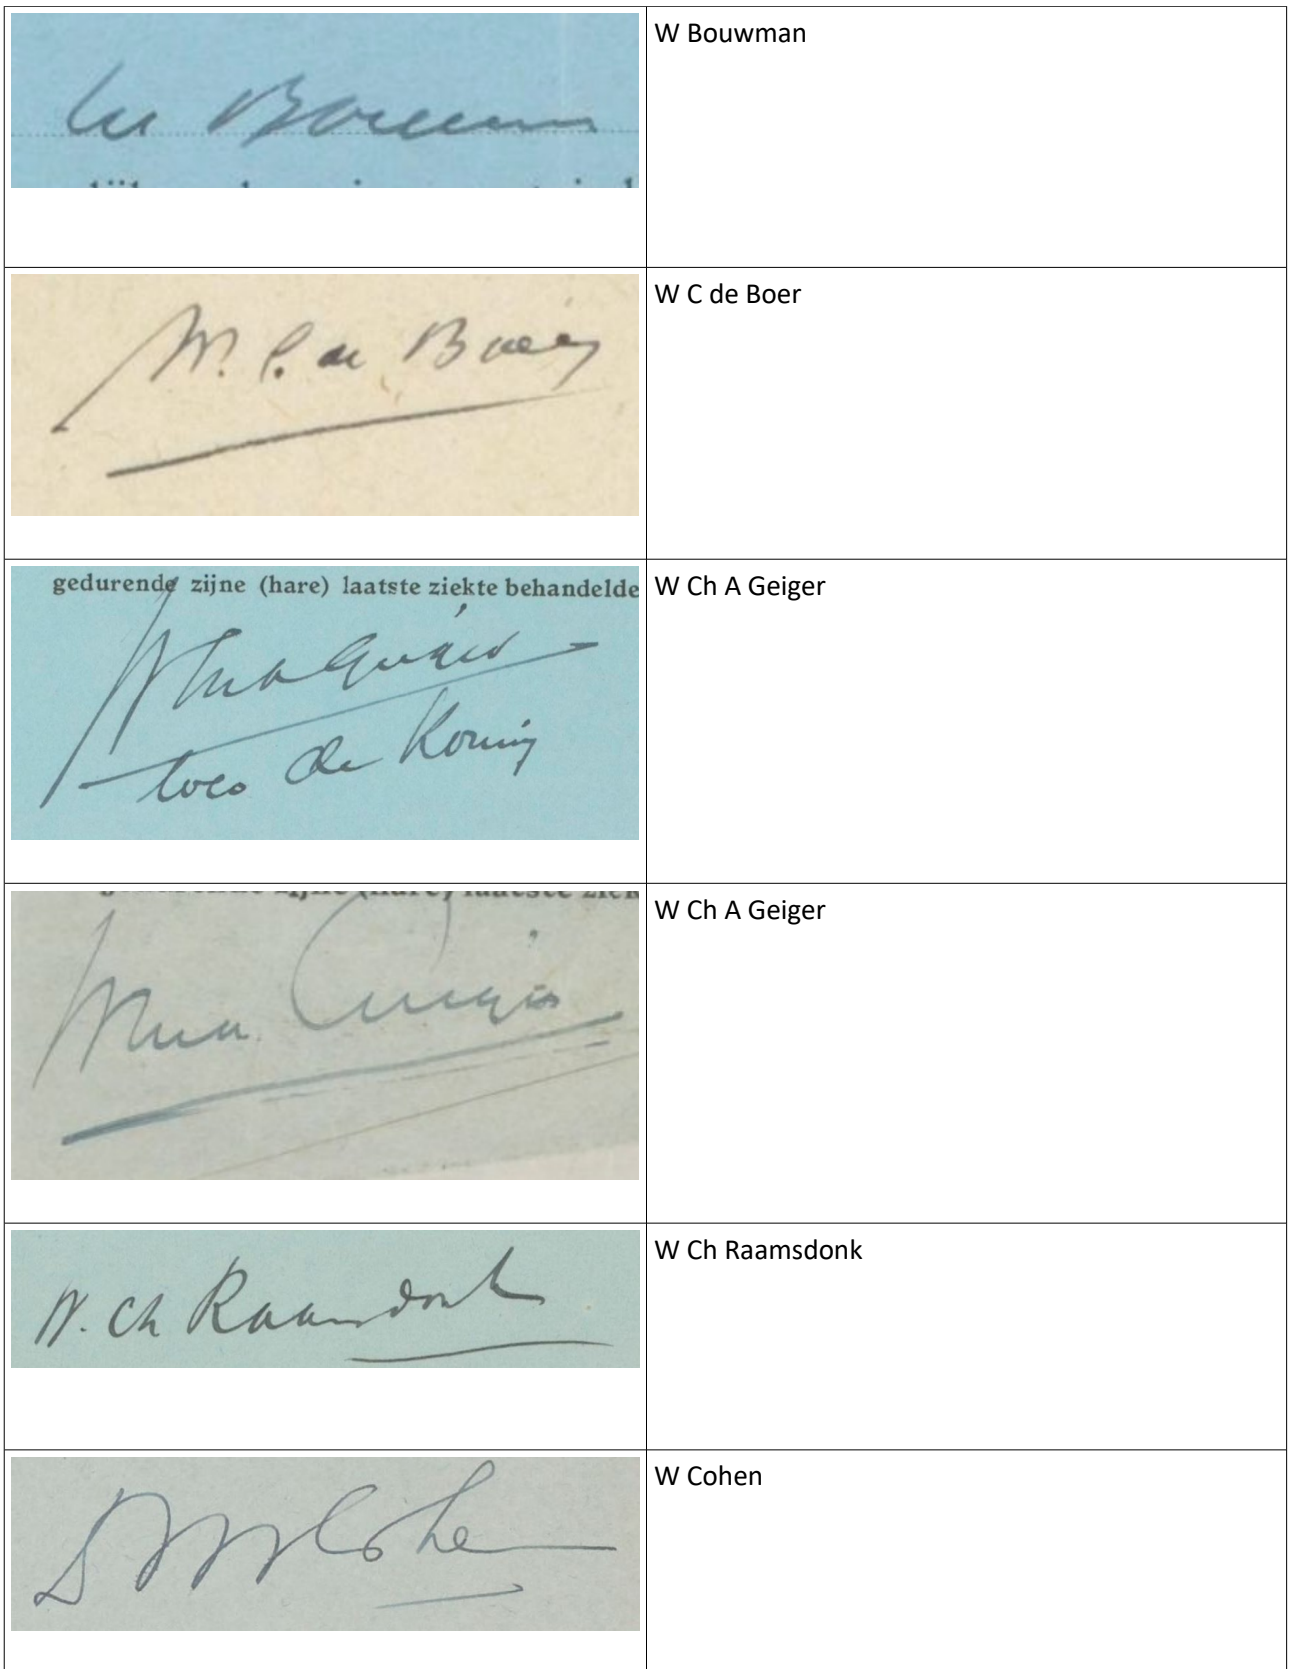 W Bouwman
W. C. de Boer
W C de Boer
gedurende zijne (hare) laatste ziekte behandelde
loco de Koning
W Ch A Geiger
W Ch A Geiger
W. Ch Raamsdonk
W Ch Raamsdonk
Cohen
W Cohen